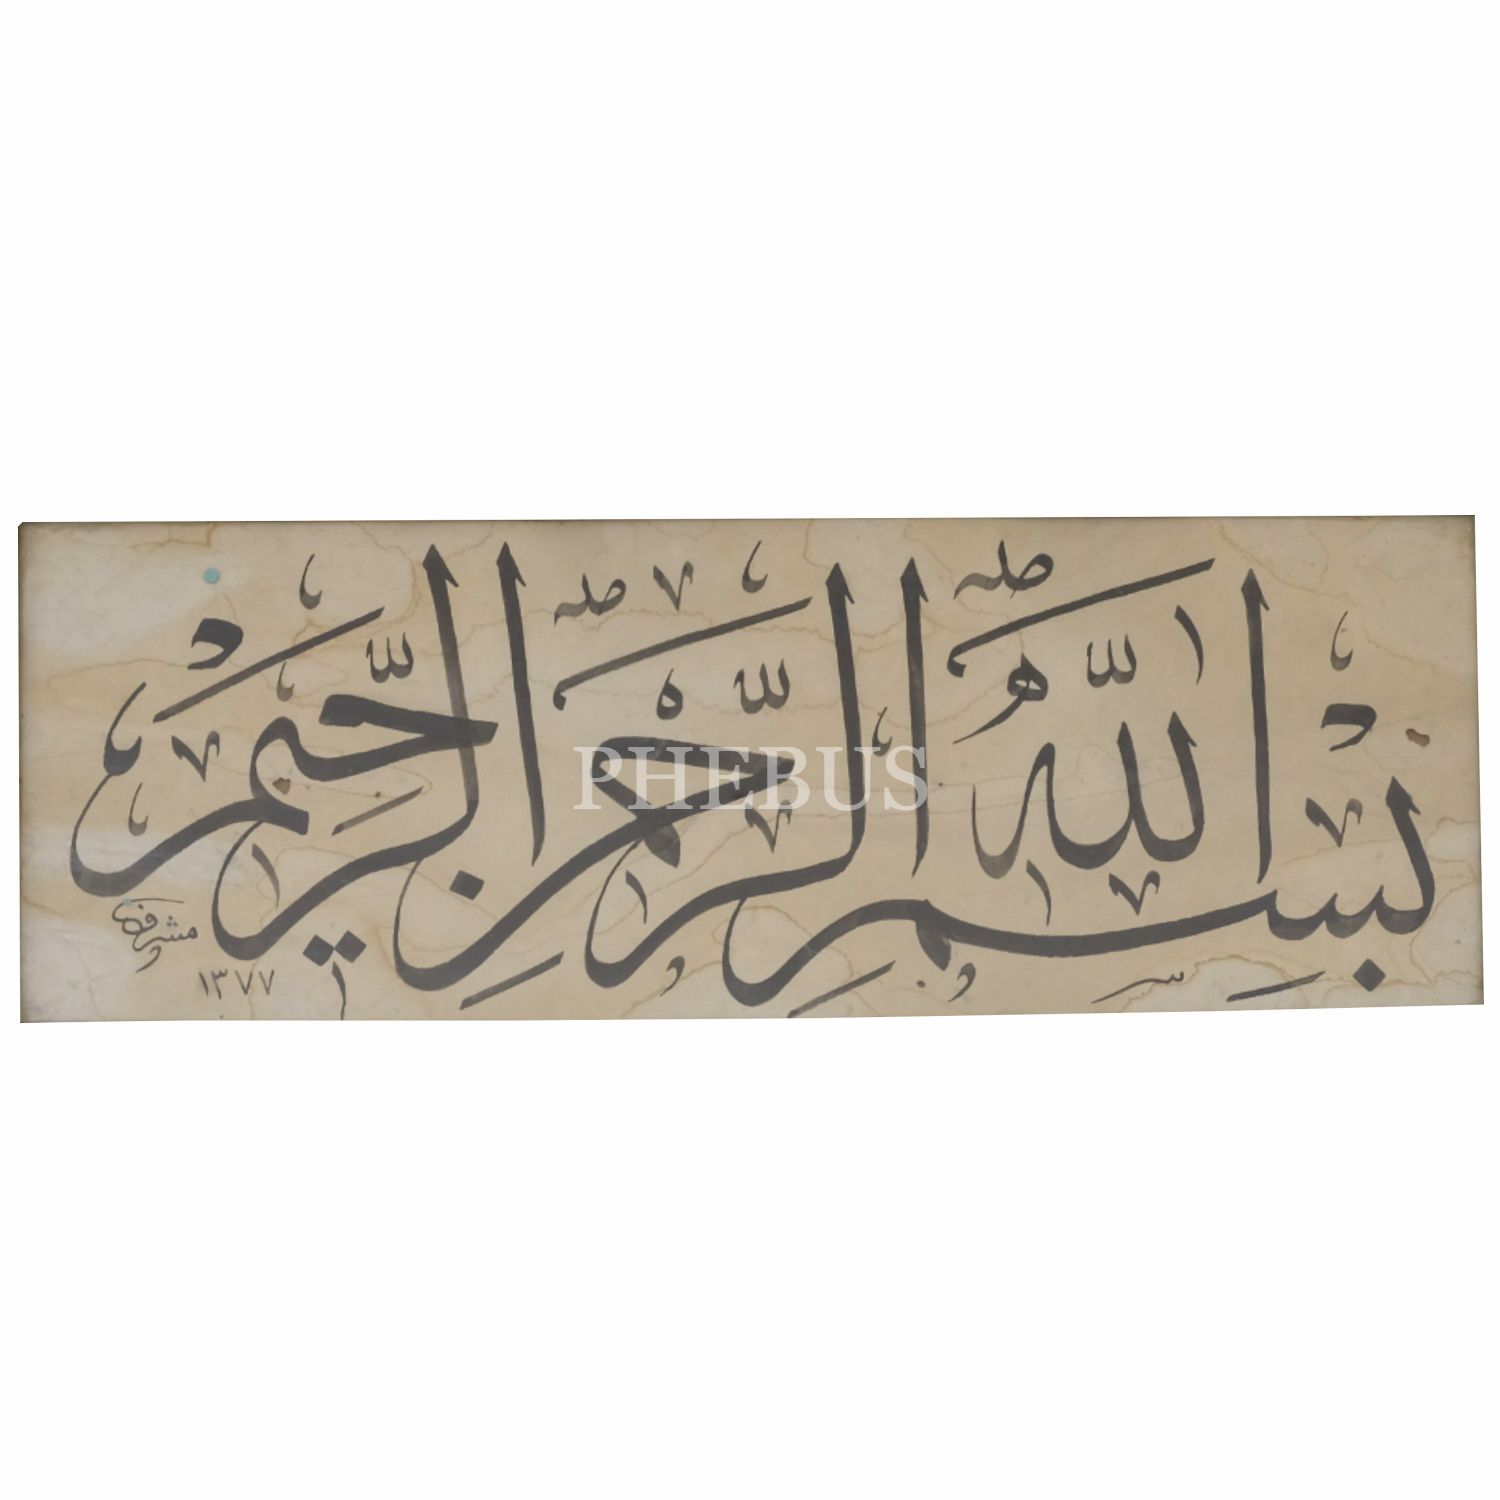 بِسْمِ اللّٰهُ الرَّحْمٰنِ الرَّحِيمِ
١٣٧٧
PHEBUS